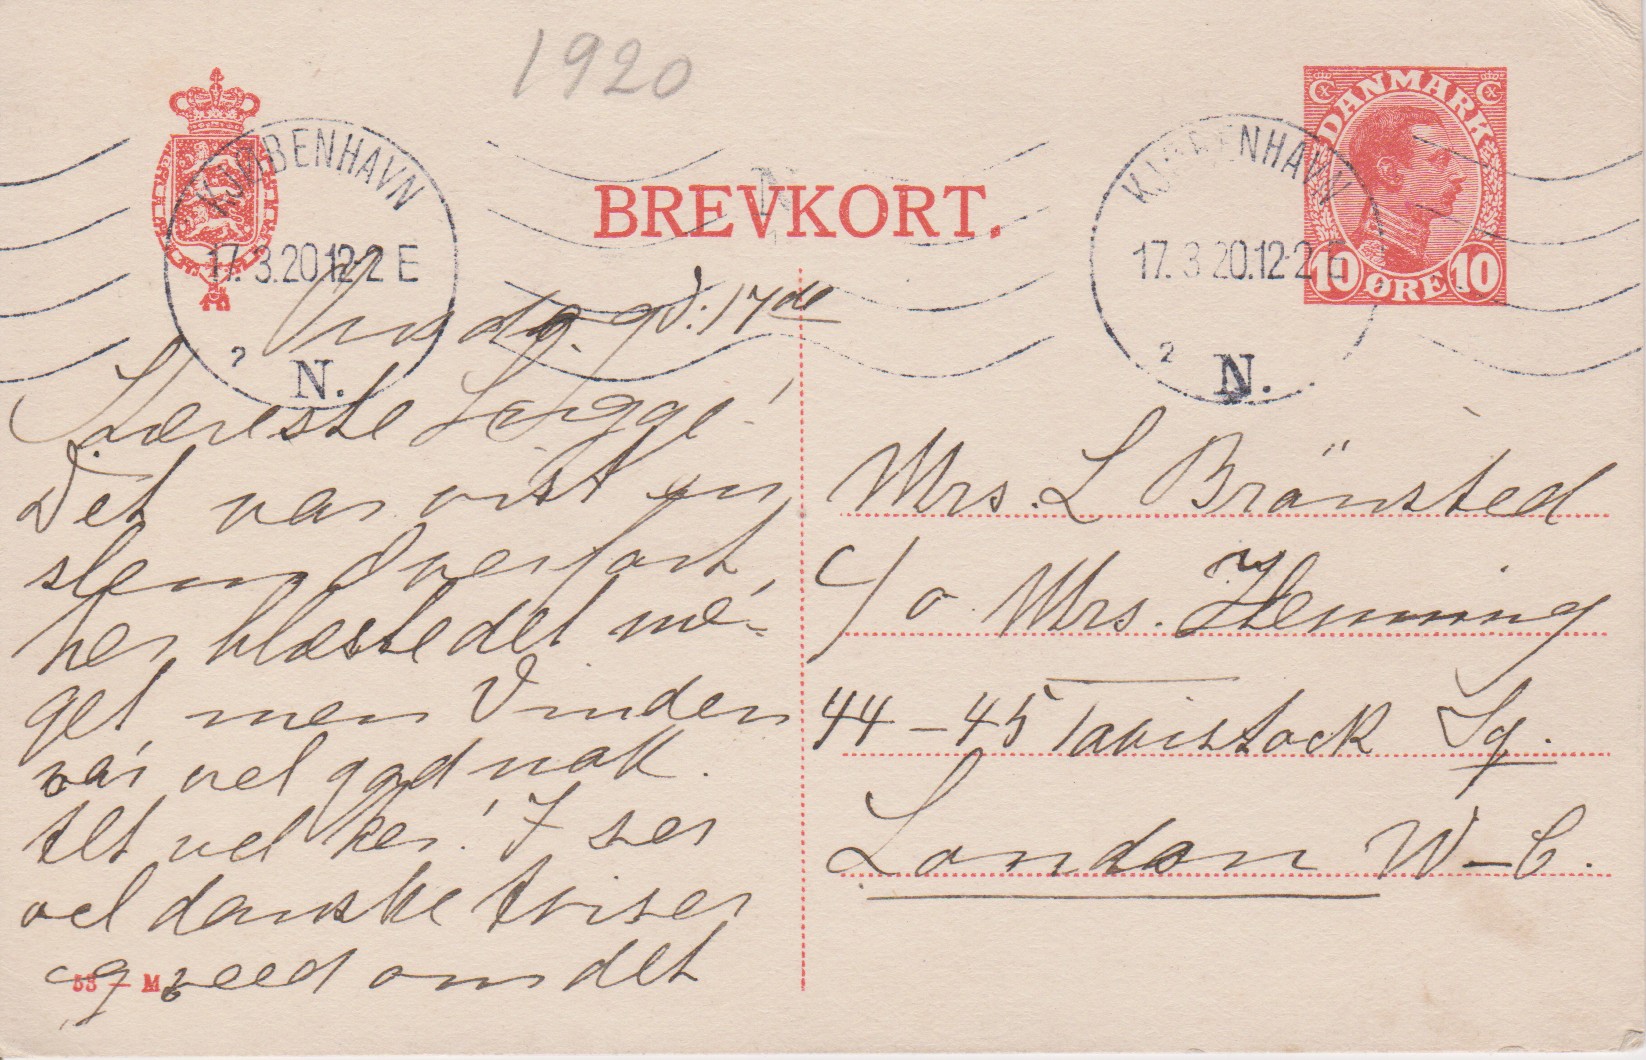 1920
DANMARK
10 ØRE 10
BREVKORT.
KJØBENHAVN
17.3.20.12-2 E
2
N.
KJØBENHAVN
17.3.20.12-2 E
2
N.
Onsdg. d: 17de
Kæreste Sigge!
Det var vist en
slem Overfart,
her blæste det me-
get men Vinden
var vel god nok.
Alt vel her! I ser
vel danske Aviser
og veed om det
53 — M
Mrs. L Brönsted
c/o Mrs. Henning
44–45 Tavistock Sq.
London W–C.